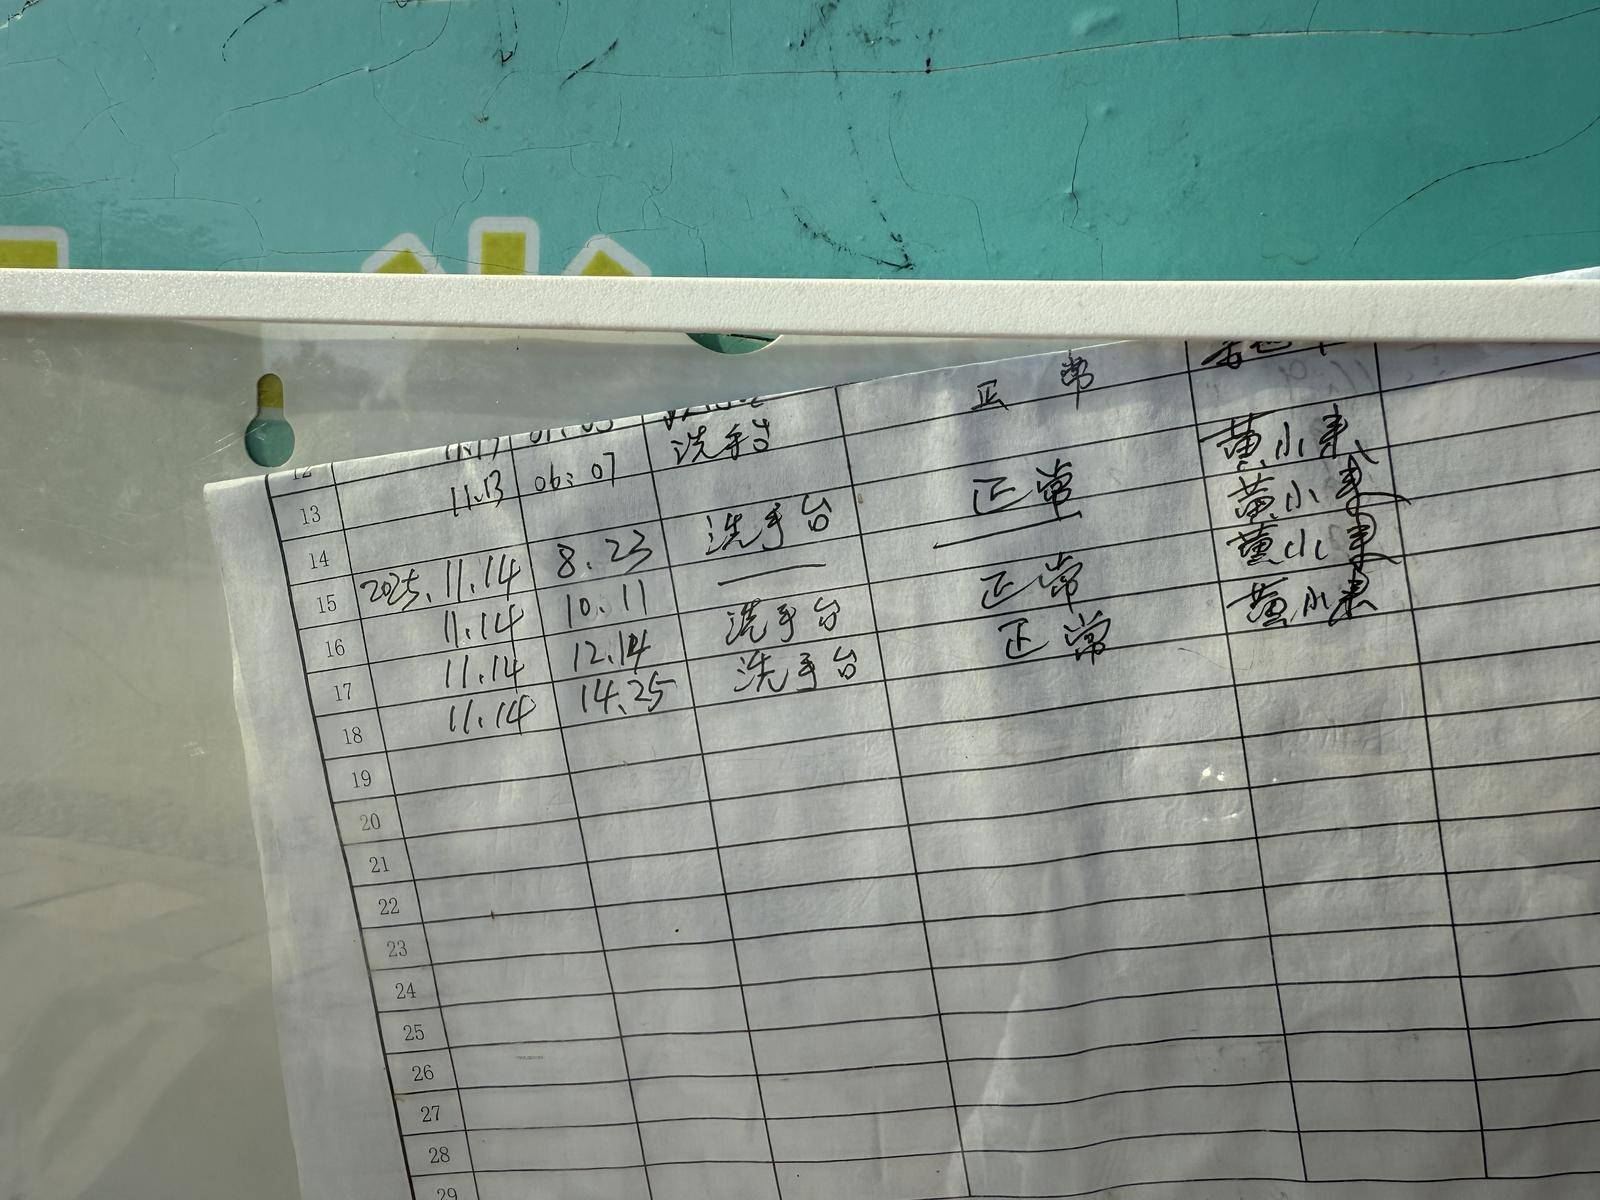 12
13 11.13 06:07 洗手台 正常
14
15 2025.11.14 8.23 洗手台 正常 黄小
16 11.14 10.11 — — 黄小
17 11.14 12.14 洗手台 正常 黄小
18 11.14 14.25 洗手台 正常 黄小
19
20
21
22
23
24
25
26
27
28
29